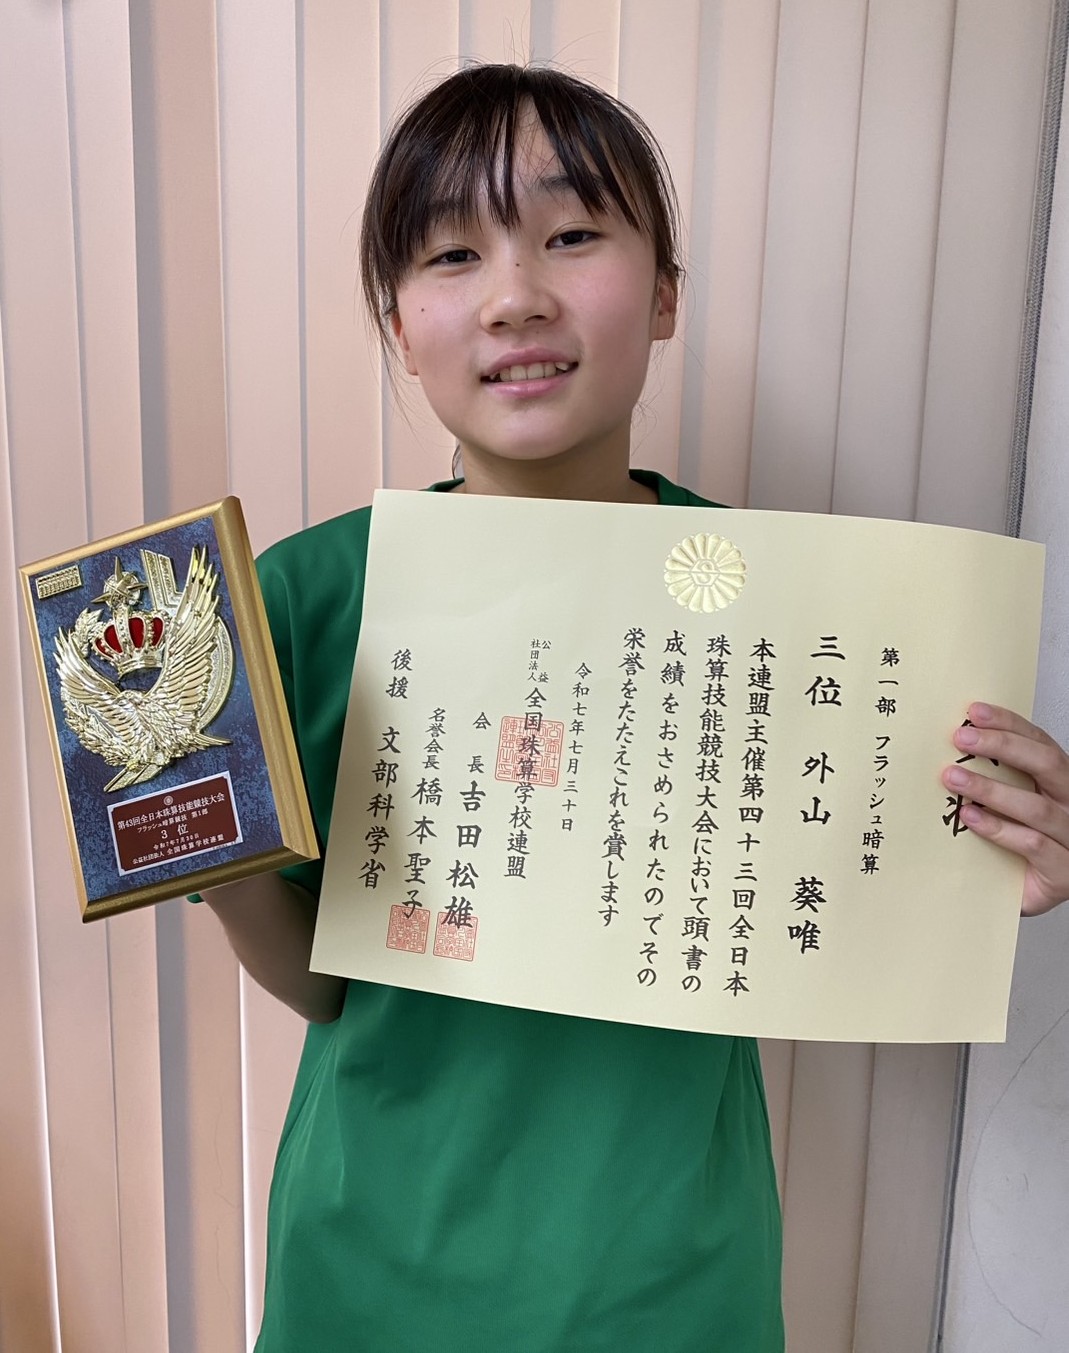 第43回全日本珠算技能競技大会
フラッシュ暗算競技 第1部
3 位
令和7年7月30日
公益社団法人 全国珠算学校連盟
第一部 フラッシュ暗算
三位 外山 葵唯
本連盟主催第四十三回全日本
珠算技能競技大会において頭書の
成績をおさめられたのでその
栄誉をたたえこれを賞します
令和七年七月三十日
公益社団法人 全国珠算学校連盟
会長 吉田松雄
名誉会長 橋本聖子
後援 文部科学省